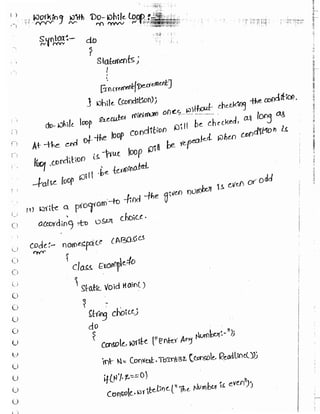 Working With Do-While Loop :-
Syntax:- do
{
Statements;
[Increment/Decrement]
} while (condition);
do-while loop executes minimum ones without checking the condition.
At the end of the loop condition will be checked, as long as
loop condition is True loop will be repeated when condition is
false loop will be terminated.
write a program to find the given number is even or odd
according to user choice.
Code:- namespace CABasics
{
class Example
{
static void Main()
{
String choice;
do
{
Console.write ("Enter Any Number:-");
int N= Convert.ToInt32 (Console.ReadLine());
if(N%2==0)
Console.writeLine("The Number is even");